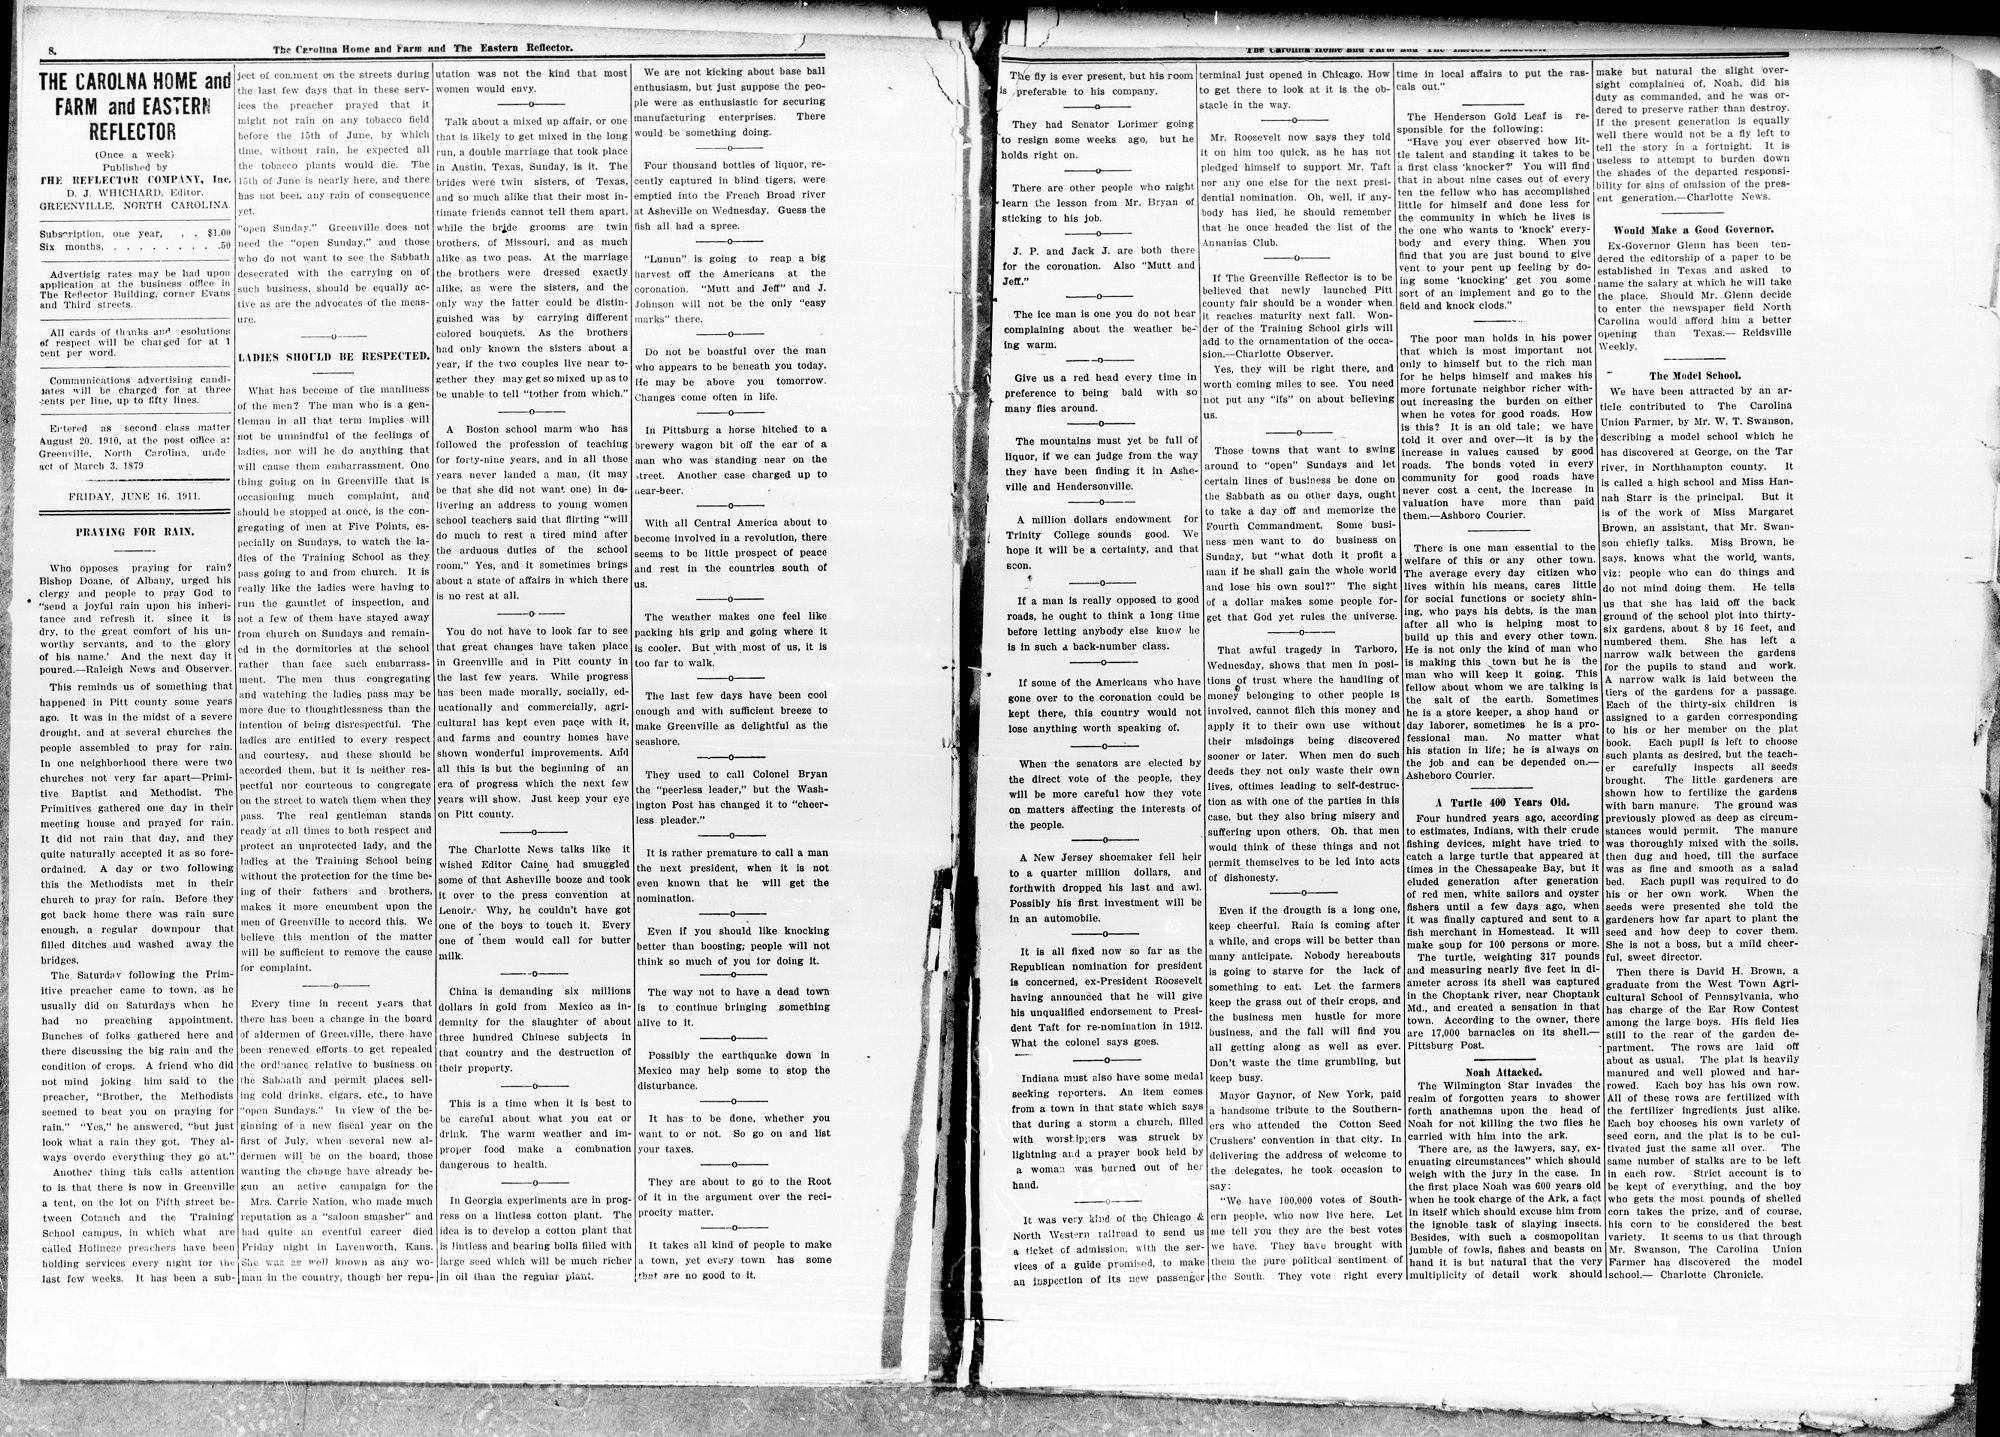 8.
The Carolina Home and Farm and The Eastern Reflector.
THE CAROLNA HOME and
FARM and EASTERN
REFLECTOR
(Once a week)
Published by
THE REFLECTOR COMPANY, Inc.
D. J. WHICHARD, Editor.
GREENVILLE, NORTH CAROLINA.
Subscription, one year, . . $1.00
Six months, . . . . . . . . .50
Advertisig rates may be had upon
application at the business office in
The Reflector Building, corner Evans
and Third streets.
All cards of thanks and resolutions
of respect will be charged for at 1
cent per word.
Communications advertising candi-
dates will be charged for at three
cents per line, up to fifty lines.
Entered as second class matter
August 20, 1910, at the post office at
Greenville, North Carolina, unde
act of March 3, 1879
FRIDAY, JUNE 16, 1911.
PRAYING FOR RAIN.
Who opposes praying for rain?
Bishop Doane, of Albany, urged his
clergy and people to pray God to
"send a joyful rain upon his inheri-
tance and refresh it. since it is
dry, to the great comfort of his un-
worthy servants, and to the glory
of his name.' And the next day it
poured.—Raleigh News and Observer.
This reminds us of something that
happened in Pitt county some years
ago. It was in the midst of a severe
drought, and at several churches the
people assembled to pray for rain.
In one neighborhood there were two
churches not very far apart—Primi-
tive Baptist and Methodist. The
Primitives gathered one day in their
meeting house and prayed for rain.
It did not rain that day, and they
quite naturally accepted it as so fore-
ordained. A day or two following
this the Methodists met in their
church to pray for rain. Before they
got back home there was rain sure
enough, a regular downpour that
filled ditches and washed away the
bridges.
The Saturday following the Prim-
itive preacher came to town, as he
usually did on Saturdays when he
had no preaching appointment.
Bunches of folks gathered here and
there discussing the big rain and the
condition of crops. A friend who did
not mind joking him said to the
preacher, "Brother, the Methodists
seemed to beat you on praying for
rain." "Yes," he answered, "but just
look what a rain they got. They al-
ways overdo everything they go at."
Another thing this calls attention
to is that there is now in Greenville
a tent, on the lot on Fifth street be-
tween Cotanch and the Training
School campus, in which what are
called Holiness preachers have been
holding services every night for the
last few weeks. It has been a sub-
ject of comment on the streets during
the last few days that in these serv-
ices the preacher prayed that it
might not rain on any tobacco field
before the 15th of June, by which
time, without rain, he expected all
the tobacco plants would die. The
15th of June is nearly here, and there
has not been any rain of consequence
yet.
"open Sunday." Greenville does not
need the "open Sunday," and those
who do not want to see the Sabbath
desecrated with the carrying on of
such business, should be equally ac-
tive as are the advocates of the meas-
ure.
LADIES SHOULD BE RESPECTED.
What has become of the manliness
of the men? The man who is a gen-
tleman in all that term implies will
not be unmindful of the feelings of
ladies, nor will he do anything that
will cause them embarrassment. One
thing going on in Greenville that is
occasioning much complaint, and
should be stopped at once, is the con-
gregating of men at Five Points, es-
pecially on Sundays, to watch the la-
dies of the Training School as they
pass going to and from church. It is
really like the ladies were having to
run the gauntlet of inspection, and
not a few of them have stayed away
from church on Sundays and remain-
ed in the dormitories at the school
rather than face such embarrass-
ment. The men thus congregating
and watching the ladies pass may be
more due to thoughtlessness than the
intention of being disrespectful. The
ladies are entitled to every respect
and courtesy, and these should be
accorded them, but it is neither res-
pectful nor courteous to congregate
on the street to watch them when they
pass. The real gentleman stands
ready at all times to both respect and
protect an unprotected lady, and the
ladies at the Training School being
without the protection for the time be-
ing of their fathers and brothers,
makes it more encumbent upon the
men of Greenville to accord this. We
believe this mention of the matter
will be sufficient to remove the cause
for complaint.
Every time in recent years that
there has been a change in the board
of aldermen of Greenville, there have
been renewed efforts to get repealed
the ordinance relative to business on
the Sabbath and permit places sell-
ing cold drinks, cigars, etc., to have
"open Sundays." In view of the be-
ginning of a new fiscal year on the
first of July, when several new al-
dermen will be on the board, those
wanting the change have already be-
gun an active campaign for the
Mrs. Carrie Nation, who made much
reputation as a "saloon smasher" and
had quite an eventful career died
Friday night in Lavenworth, Kans.
She was as well known as any wo-
man in the country, though her repu-
utation was not the kind that most
women would envy.
Talk about a mixed up affair, or one
that is likely to get mixed in the long
run, a double marriage that took place
in Austin, Texas, Sunday, is it. The
brides were twin sisters, of Texas,
and so much alike that their most in-
timate friends cannot tell them apart,
while the bride grooms are twin
brothers, of Missouri, and as much
alike as two peas. At the marriage
the brothers were dressed exactly
alike, as were the sisters, and the
only way the latter could be distin-
guished was by carrying different
colored bouquets. As the brothers
had only known the sisters about a
year, if the two couples live near to-
gether they may get so mixed up as to
be unable to tell "tother from which."
A Boston school marm who has
followed the profession of teaching
for forty-nine years, and in all those
years never landed a man, (it may
be that she did not want one) in de-
livering an address to young women
school teachers said that flirting "will
do much to rest a tired mind after
the arduous duties of the school
room." Yes, and it sometimes brings
about a state of affairs in which there
is no rest at all.
You do not have to look far to see
that great changes have taken place
in Greenville and in Pitt county in
the last few years. While progress
has been made morally, socially, ed-
ucationally and commercially, agri-
cultural has kept even pace with it,
and farms and country homes have
shown wonderful improvements. And
all this is but the beginning of an
era of progress which the next few
years will show. Just keep your eye
on Pitt county.
The Charlotte News talks like it
wished Editor Caine had smuggled
some of that Asheville booze and took
it over to the press convention at
Lenoir. Why, he couldn't have got
one of the boys to touch it. Every
one of them would call for butter
milk.
China is demanding six millions
dollars in gold from Mexico as in-
demnity for the slaughter of about
three hundred Chinese subjects in
that country and the destruction of
their property.
This is a time when it is best to
be careful about what you eat or
drink. The warm weather and im-
proper food make a combnation
dangerous to health.
In Georgia experiments are in prog-
ress on a lintless cotton plant. The
idea is to develop a cotton plant that
is lintless and bearing bolls filled with
large seed which will be much richer
in oil than the regular plant.
We are not kicking about base ball
enthusiasm, but just suppose the peo-
ple were as enthusiastic for securing
manufacturing enterprises. There
would be something doing.
Four thousand bottles of liquor, re-
cently captured in blind tigers, were
emptied into the French Broad river
at Asheville on Wednesday. Guess the
fish all had a spree.
"Lunun" is going to reap a big
harvest off the Americans at the
coronation. "Mutt and Jeff" and J.
Johnson will not be the only "easy
marks" there.
Do not be boastful over the man
who appears to be beneath you today.
He may be above you tomorrow.
Changes come often in life.
In Pittsburg a horse hitched to a
brewery wagon bit off the ear of a
man who was standing near on the
street. Another case charged up to
near-beer.
With all Central America about to
become involved in a revolution, there
seems to be little prospect of peace
and rest in the countries south of
us.
The weather makes one feel like
packing his grip and going where it
is cooler. But with most of us, it is
too far to walk.
The last few days have been cool
enough and with sufficient breeze to
make Greenville as delightful as the
seashore.
They used to call Colonel Bryan
the "peerless leader," but the Wash-
ington Post has changed it to "cheer-
less pleader."
It is rather premature to call a man
the next president, when it is not
even known that he will get the
nomination.
Even if you should like knocking
better than boosting; people will not
think so much of you for doing it.
The way not to have a dead town
is to continue bringing something
alive to it.
Possibly the earthquake down in
Mexico may help some to stop the
disturbance.
It has to be done, whether you
want to or not. So go on and list
your taxes.
They are about to go to the Root
of it in the argument over the reci-
procity matter.
It takes all kind of people to make
a town, yet every town has some
that are no good to it.
The Carolina Home and Farm and The Eastern Reflector.
The fly is ever present, but his room
is preferable to his company.
They had Senator Lorimer going
to resign some weeks ago, but he
holds right on.
There are other people who might
learn the lesson from Mr. Bryan of
sticking to his job.
J. P. and Jack J. are both there
for the coronation. Also "Mutt and
Jeff."
The ice man is one you do not hear
complaining about the weather be-
ing warm.
Give us a red head every time in
preference to being bald with so
many flies around.
The mountains must yet be full of
liquor, if we can judge from the way
they have been finding it in Ashe-
ville and Hendersonville.
A million dollars endowment for
Trinity College sounds good. We
hope it will be a certainty, and that
soon.
If a man is really opposed to good
roads, he ought to think a long time
before letting anybody else know he
is in such a back-number class.
If some of the Americans who have
gone over to the coronation could be
kept there, this country would not
lose anything worth speaking of.
When the senators are elected by
the direct vote of the people, they
will be more careful how they vote
on matters affecting the interests of
the people.
A New Jersey shoemaker fell heir
to a quarter million dollars, and
forthwith dropped his last and awl.
Possibly his first investment will be
in an automobile.
It is all fixed now so far as the
Republican nomination for president
is concerned, ex-President Roosevelt
having announced that he will give
his unqualified endorsement to Presi-
dent Taft for re-nomination in 1912.
What the colonel says goes.
Indiana must also have some medal
seeking reporters. An item comes
from a town in that state which says
that during a storm a church, filled
with worshippers was struck by
lightning and a prayer book held by
a woman was burned out of her
hand.
It was very kind of the Chicago &
North Western railroad to send us
a ticket of admission, with the ser-
vices of a guide promised, to make
an inspection of its new passenger
terminal just opened in Chicago. How
to get there to look at it is the ob-
stacle in the way.
Mr. Roosevelt now says they told
it on him too quick, as he has not
pledged himself to support Mr. Taft
nor any one else for the next presi-
dential nomination. Oh, well, if any-
body has lied, he should remember
that he once headed the list of the
Annanias Club.
If The Greenville Reflector is to be
believed that newly launched Pitt
county fair should be a wonder when
it reaches maturity next fall. Won-
der of the Training School girls will
add to the ornamentation of the occa-
sion.—Charlotte Observer.
Yes, they will be right there, and
worth coming miles to see. You need
not put any "ifs" on about believing
us.
Those towns that want to swing
around to "open" Sundays and let
certain lines of business be done on
the Sabbath as on other days, ought
to take a day off and memorize the
Fourth Commandment. Some busi-
ness men want to do business on
Sunday, but "what doth it profit a
man if he shall gain the whole world
and lose his own soul?" The sight
of a dollar makes some people for-
get that God yet rules the universe.
That awful tragedy in Tarboro,
Wednesday, shows that men in posi-
tions of trust where the handling of
money belonging to other people is
involved, cannot filch this money and
apply it to their own use without
their misdoings being discovered
sooner or later. When men do such
deeds they not only waste their own
lives, oftimes leading to self-destruc-
tion as with one of the parties in this
case, but they also bring misery and
suffering upon others. Oh. that men
would think of these things and not
permit themselves to be led into acts
of dishonesty.
Even if the drougth is a long one,
keep cheerful. Rain is coming after
a while, and crops will be better than
many anticipate. Nobody hereabouts
is going to starve for the lack of
something to eat. Let the farmers
keep the grass out of their crops, and
the business men hustle for more
business, and the fall will find you
all getting along as well as ever.
Don't waste the time grumbling, but
keep busy.
Mayor Gaynor, of New York, paid
a handsome tribute to the Southern-
ers who attended the Cotton Seed
Crushers' convention in that city. In
delivering the address of welcome to
the delegates, he took occasion to
say:
"We have 100,000 votes of South-
ern people, who now live here. Let
me tell you they are the best votes
we have. They have brought with
them the pure political sentiment of
the South. They vote right every
time in local affairs to put the ras-
cals out."
The Henderson Gold Leaf is re-
sponsible for the following:
"Have you ever observed how lit-
tle talent and standing it takes to be
a first class 'knocker?' You will find
that in about nine cases out of every
ten the fellow who has accomplished
little for himself and done less for
the community in which he lives is
the one who wants to 'knock' every-
body and every thing. When you
find that you are just bound to give
vent to your pent up feeling by do-
ing some 'knocking' get you some
sort of an implement and go to the
field and knock clods."
The poor man holds in his power
that which is most important not
only to himself but to the rich man
for he helps himself and makes his
more fortunate neighbor richer with-
out increasing the burden on either
when he votes for good roads. How
is this? It is an old tale; we have
told it over and over—it is by the
increase in values caused by good
roads. The bonds voted in every
community for good roads have
never cost a cent, the increase in
valuation have more than paid
them.—Ashboro Courier.
There is one man essential to the
welfare of this or any other town.
The average every day citizen who
lives within his means, cares little
for social functions or society shin-
ing, who pays his debts, is the man
after all who is helping most to
build up this and every other town.
He is not only the kind of man who
is making this town but he is the
man who will keep it going. This
fellow about whom we are talking is
the salt of the earth. Sometimes
he is a store keeper, a shop hand or
day laborer, sometimes he is a pro-
fessional man. No matter what
his station in life; he is always on
the job and can be depended on.—
Asheboro Courier.
A Turtle 400 Years Old.
Four hundred years ago, according
to estimates, Indians, with their crude
fishing devices, might have tried to
catch a large turtle that appeared at
times in the Chessapeake Bay, but it
eluded generation after generation
of red men, white sailors and oyster
fishers until a few days ago, when
it was finally captured and sent to a
fish merchant in Homestead. It will
make soup for 100 persons or more.
The turtle, weighting 317 pounds
and measuring nearly five feet in di-
ameter across its shell was captured
in the Choptank river, near Choptank
Md., and created a sensation in that
town. According to the owner, there
are 17,000 barnacles on its shell.—
Pittsburg Post.
Noah Attacked.
The Wilmington Star invades the
realm of forgotten years to shower
forth anathemas upon the head of
Noah for not killing the two flies he
carried with him into the ark.
There are, as the lawyers, say, ex-
enuating circumstances" which should
weigh with the jury in the case. In
the first place Noah was 600 years old
when he took charge of the Ark, a fact
in itself which should excuse him from
the ignoble task of slaying insects.
Besides, with such a cosmopolitan
jumble of fowls, fishes and beasts on
hand it is but natural that the very
multiplicity of detail work should
make but natural the slight over-
sight complained of, Noah, did his
duty as commanded, and he was or-
dered to preserve rather than destroy.
If the present generation is equally
well there would not be a fly left to
tell the story in a fortnight. It is
useless to attempt to burden down
the shades of the departed responsi-
bility for sins of omission of the pres-
ent generation.—Charlotte News.
Would Make a Good Governor.
Ex-Governor Glenn has been ten-
dered the editorship of a paper to be
established in Texas and asked to
name the salary at which he will take
the place. Should Mr. Glenn decide
to enter the newspaper field North
Carolina would afford him a better
opening than Texas.— Reidsville
Weekly.
The Model School.
We have been attracted by an ar-
ticle contributed to The Carolina
Union Farmer, by Mr. W. T. Swanson,
describing a model school which he
has discovered at George, on the Tar
river, in Northhampton county. It
is called a high school and Miss Han-
nah Starr is the principal. But it
is of the work of Miss Margaret
Brown, an assistant, that Mr. Swan-
son chiefly talks. Miss Brown, he
says, knows what the world wants,
viz: people who can do things and
do not mind doing them. He tells
us that she has laid off the back
ground of the school plot into thirty-
six gardens, about 8 by 16 feet, and
numbered them. She has left a
narrow walk between the gardens
for the pupils to stand and work.
A narrow walk is laid between the
tiers of the gardens for a passage.
Each of the thirty-six children is
assigned to a garden corresponding
to his or her member on the plat
book. Each pupil is left to choose
such plants as desired, but the teach-
er carefully inspects all seeds
brought. The little gardeners are
shown how to fertilize the gardens
with barn manure. The ground was
previously plowed as deep as circum-
stances would permit. The manure
was thoroughly mixed with the soils,
then dug and hoed, till the surface
was as fine and smooth as a salad
bed. Each pupil was required to do
his or her own work. When the
seeds were presented she told the
gardeners how far apart to plant the
seed and how deep to cover them.
She is not a boss, but a mild cheer-
ful, sweet director.
Then there is David H. Brown, a
graduate from the West Town Agri-
cultural School of Pennsylvania, who
has charge of the Ear Row Contest
among the large boys. His field lies
still to the rear of the garden de-
partment. The rows are laid off
about as usual. The plat is heavily
manured and well plowed and har-
rowed. Each boy has his own row.
All of these rows are fertilized with
the fertilizer ingredients just alike.
Each boy chooses his own variety of
seed corn, and the plat is to be cul-
tivated just the same all over. The
same number of stalks are to be left
in each row. Strict account is to
be kept of everything, and the boy
who gets the most pounds of shelled
corn takes the prize, and of course,
his corn to be considered the best
variety. It seems to us that through
Mr. Swanson, The Carolina Union
Farmer has discovered the model
school.— Charlotte Chronicle.